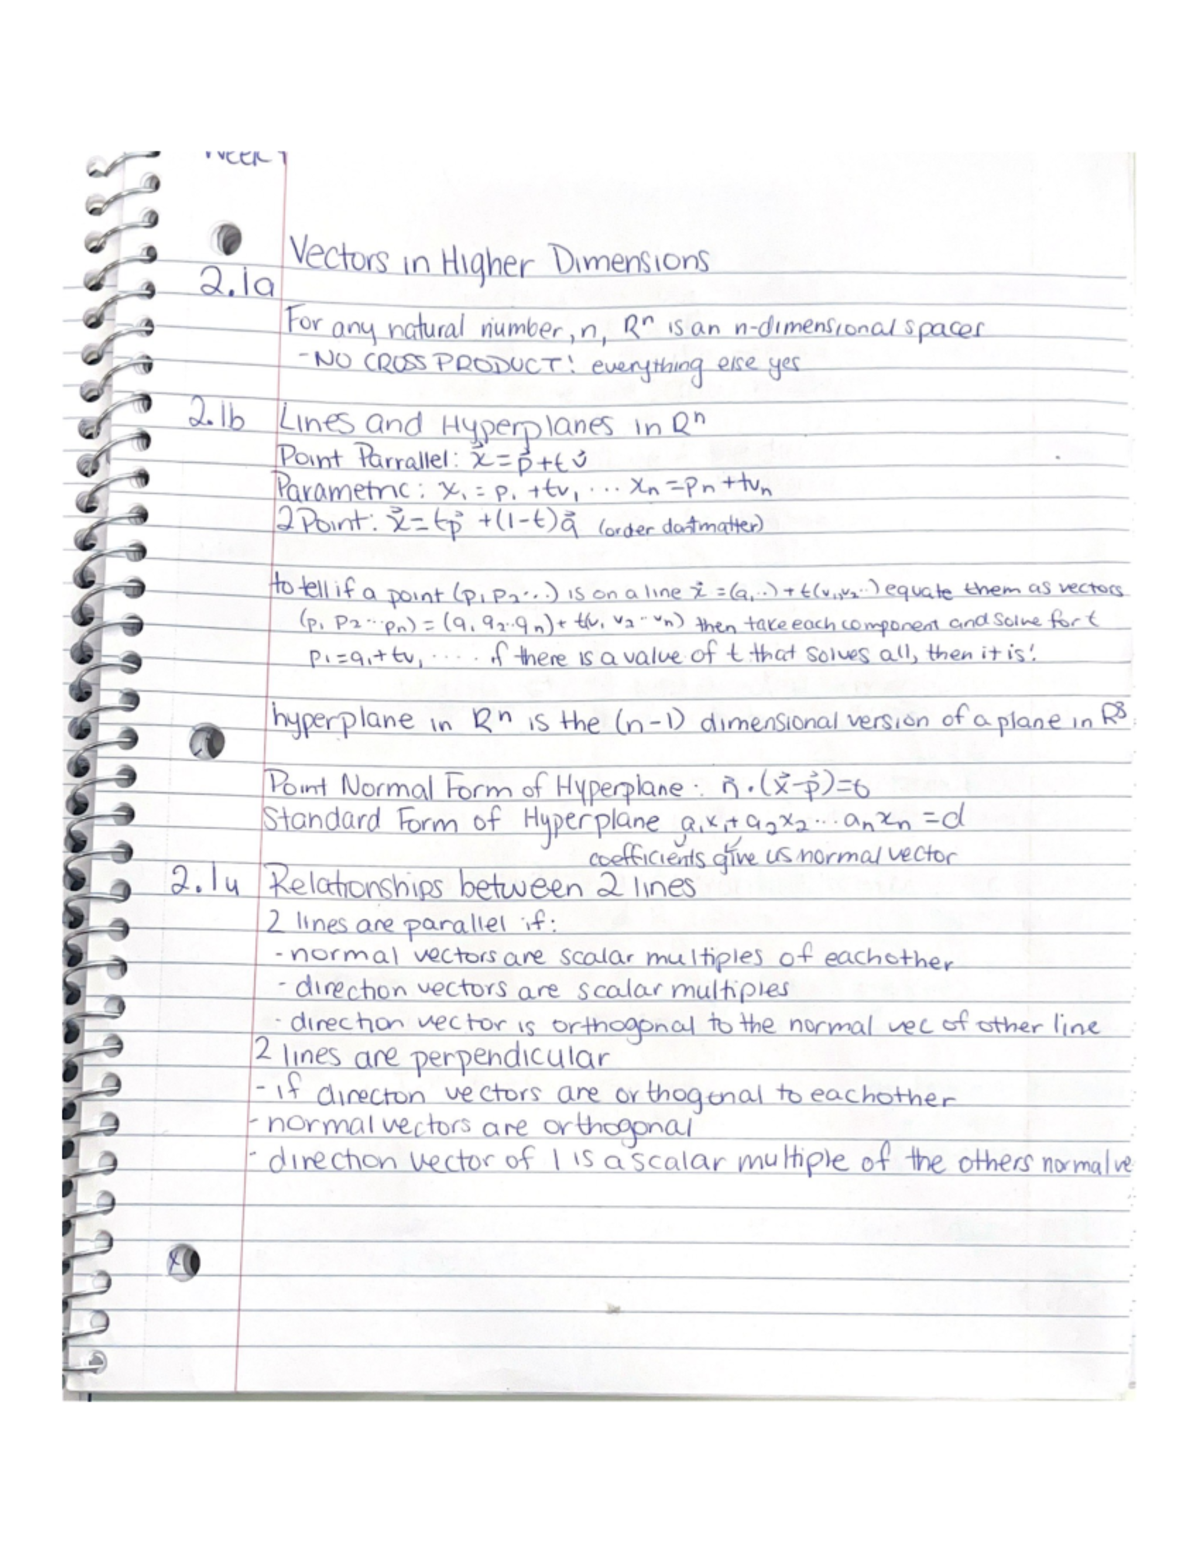 WEEK
Vectors in Higher Dimensions
2.1a
For any natural number, n, Rⁿ is an n-dimensional spaces
-NO CROSS PRODUCT! everything else yes
2.1b Lines and Hyperplanes in Rⁿ
Point Parrallel: x⃗ = p⃗ + t v⃗
Parametric: x₁ = p₁ + tv₁ ... xₙ = pₙ + tvₙ
2 Point: x⃗ = tp⃗ + (1-t)q⃗ (order dont matter)
to tell if a point (p₁ p₂...) is on a line x⃗ = (q₁..) + t(v₁,v₂..) equate them as vectors
(p₁ p₂...pₙ) = (q₁ q₂..qₙ) + t(v₁ v₂...vₙ) then take each component and solve for t
p₁ = q₁ + tv₁ ..... if there is a value of t that solves all, then it is!
hyperplane in Rⁿ is the (n-1) dimensional version of a plane in R³
Point Normal Form of Hyperplane: n⃗ · (x⃗ - p⃗) = 0
Standard Form of Hyperplane a₁x₁ + a₂x₂ ... aₙxₙ = d
coefficients give us normal vector
2.1u Relationships between 2 lines
2 lines are parallel if:
- normal vectors are scalar multiples of eachother
- direction vectors are scalar multiples
- direction vector is orthogonal to the normal vec of other line
2 lines are perpendicular
- if directon vectors are orthogonal to eachother
- normal vectors are orthogonal
- direction vector of 1 is a scalar multiple of the others normal ve